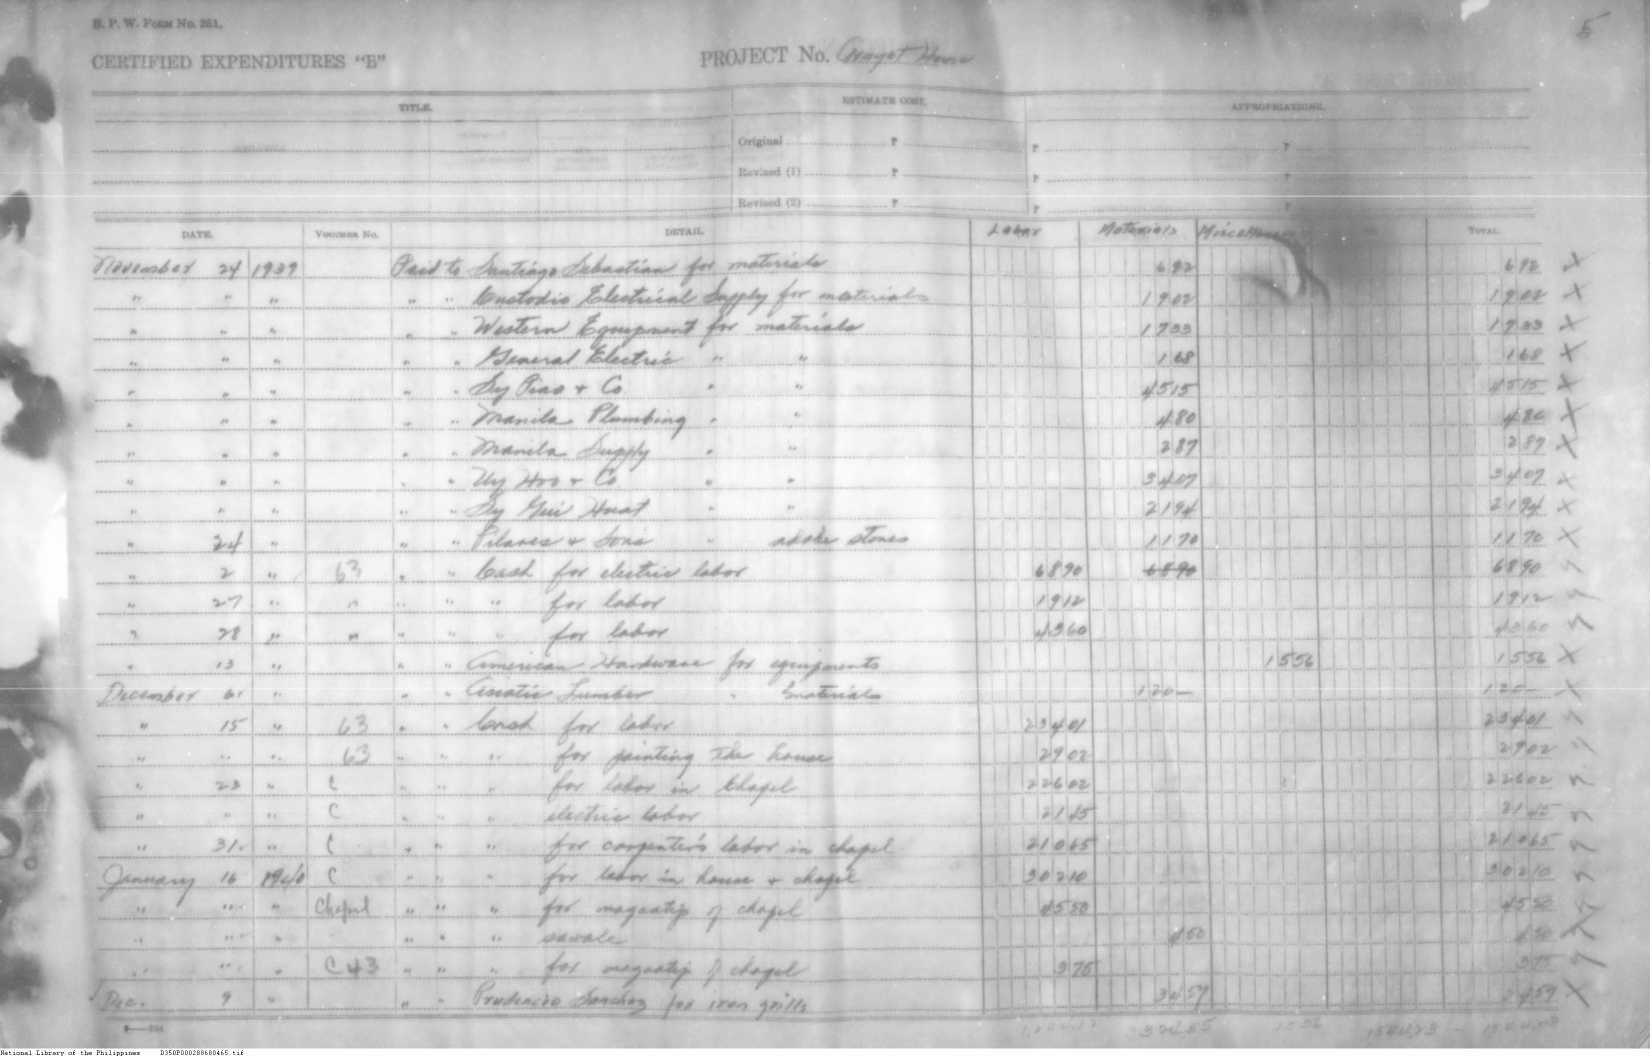 B. P. W. FORM NO. 261.
5
CERTIFIED EXPENDITURES "B"
PROJECT No. House
TITLE. ESTIMATE COST. APPROPRIATIONS.
Original P P P
Revised (1) P P P
Revised (2) P P P
DATE. VOUCHER NO. DETAIL. Labor Materials Miscellaneous TOTAL.
November 24 1939 Paid to Santiago Sebastian for materials 692 692 X
" " " " " Custodio Electrical Supply for materials 1902 1902 X
" " " " " Western Equipment for materials 1733 1733 X
" " " " " General Electric " " 168 168 X
" " " " " Sy Piao & Co " " 4515 4515 X
" " " " " Manila Plumbing " " 480 480 X
" " " " " Manila Supply " " 287 287 X
" " " " " Uy Hoo & Co " " 3407 3407 X
" " " " " Sy Gui Huat " " 2194 2194 X
" 24 " " " Pilares & Sons " adobe stones 1170 1170 X
" 2 " 63 " " Cash for electric labor 6890 6890 6890
" 27 " " " " " for labor 1912 1912
" 28 " " " " " for labor 4360 4360
" 13 " " " American Hardware for equipments 1556 1556 X
December 6 " " " Asiatic Lumber " materials 120— 120— X
" 15 " 63 " " Cash for labor 23401 23401
" " " 63 " " " for painting the house 2902 2902
" 23 " C " " " for labor in Chapel 22602 22602
" " " C " " " electric labor 2145 2145
" 31 " C " " " for carpenter's labor in chapel 21065 21065
January 16 1940 C " " " for labor in house & chapel 30210 30210
" " " Chapel " " " for of chapel 4550 4550
" " " " " " sawale 450 450 X
" " " C 43 " " " for of chapel 375 375
Dec. 9 " " " Prudencio Sanchez for iron grills 3459 3459 X
National Library of the Philippines D350P000288680465.tif